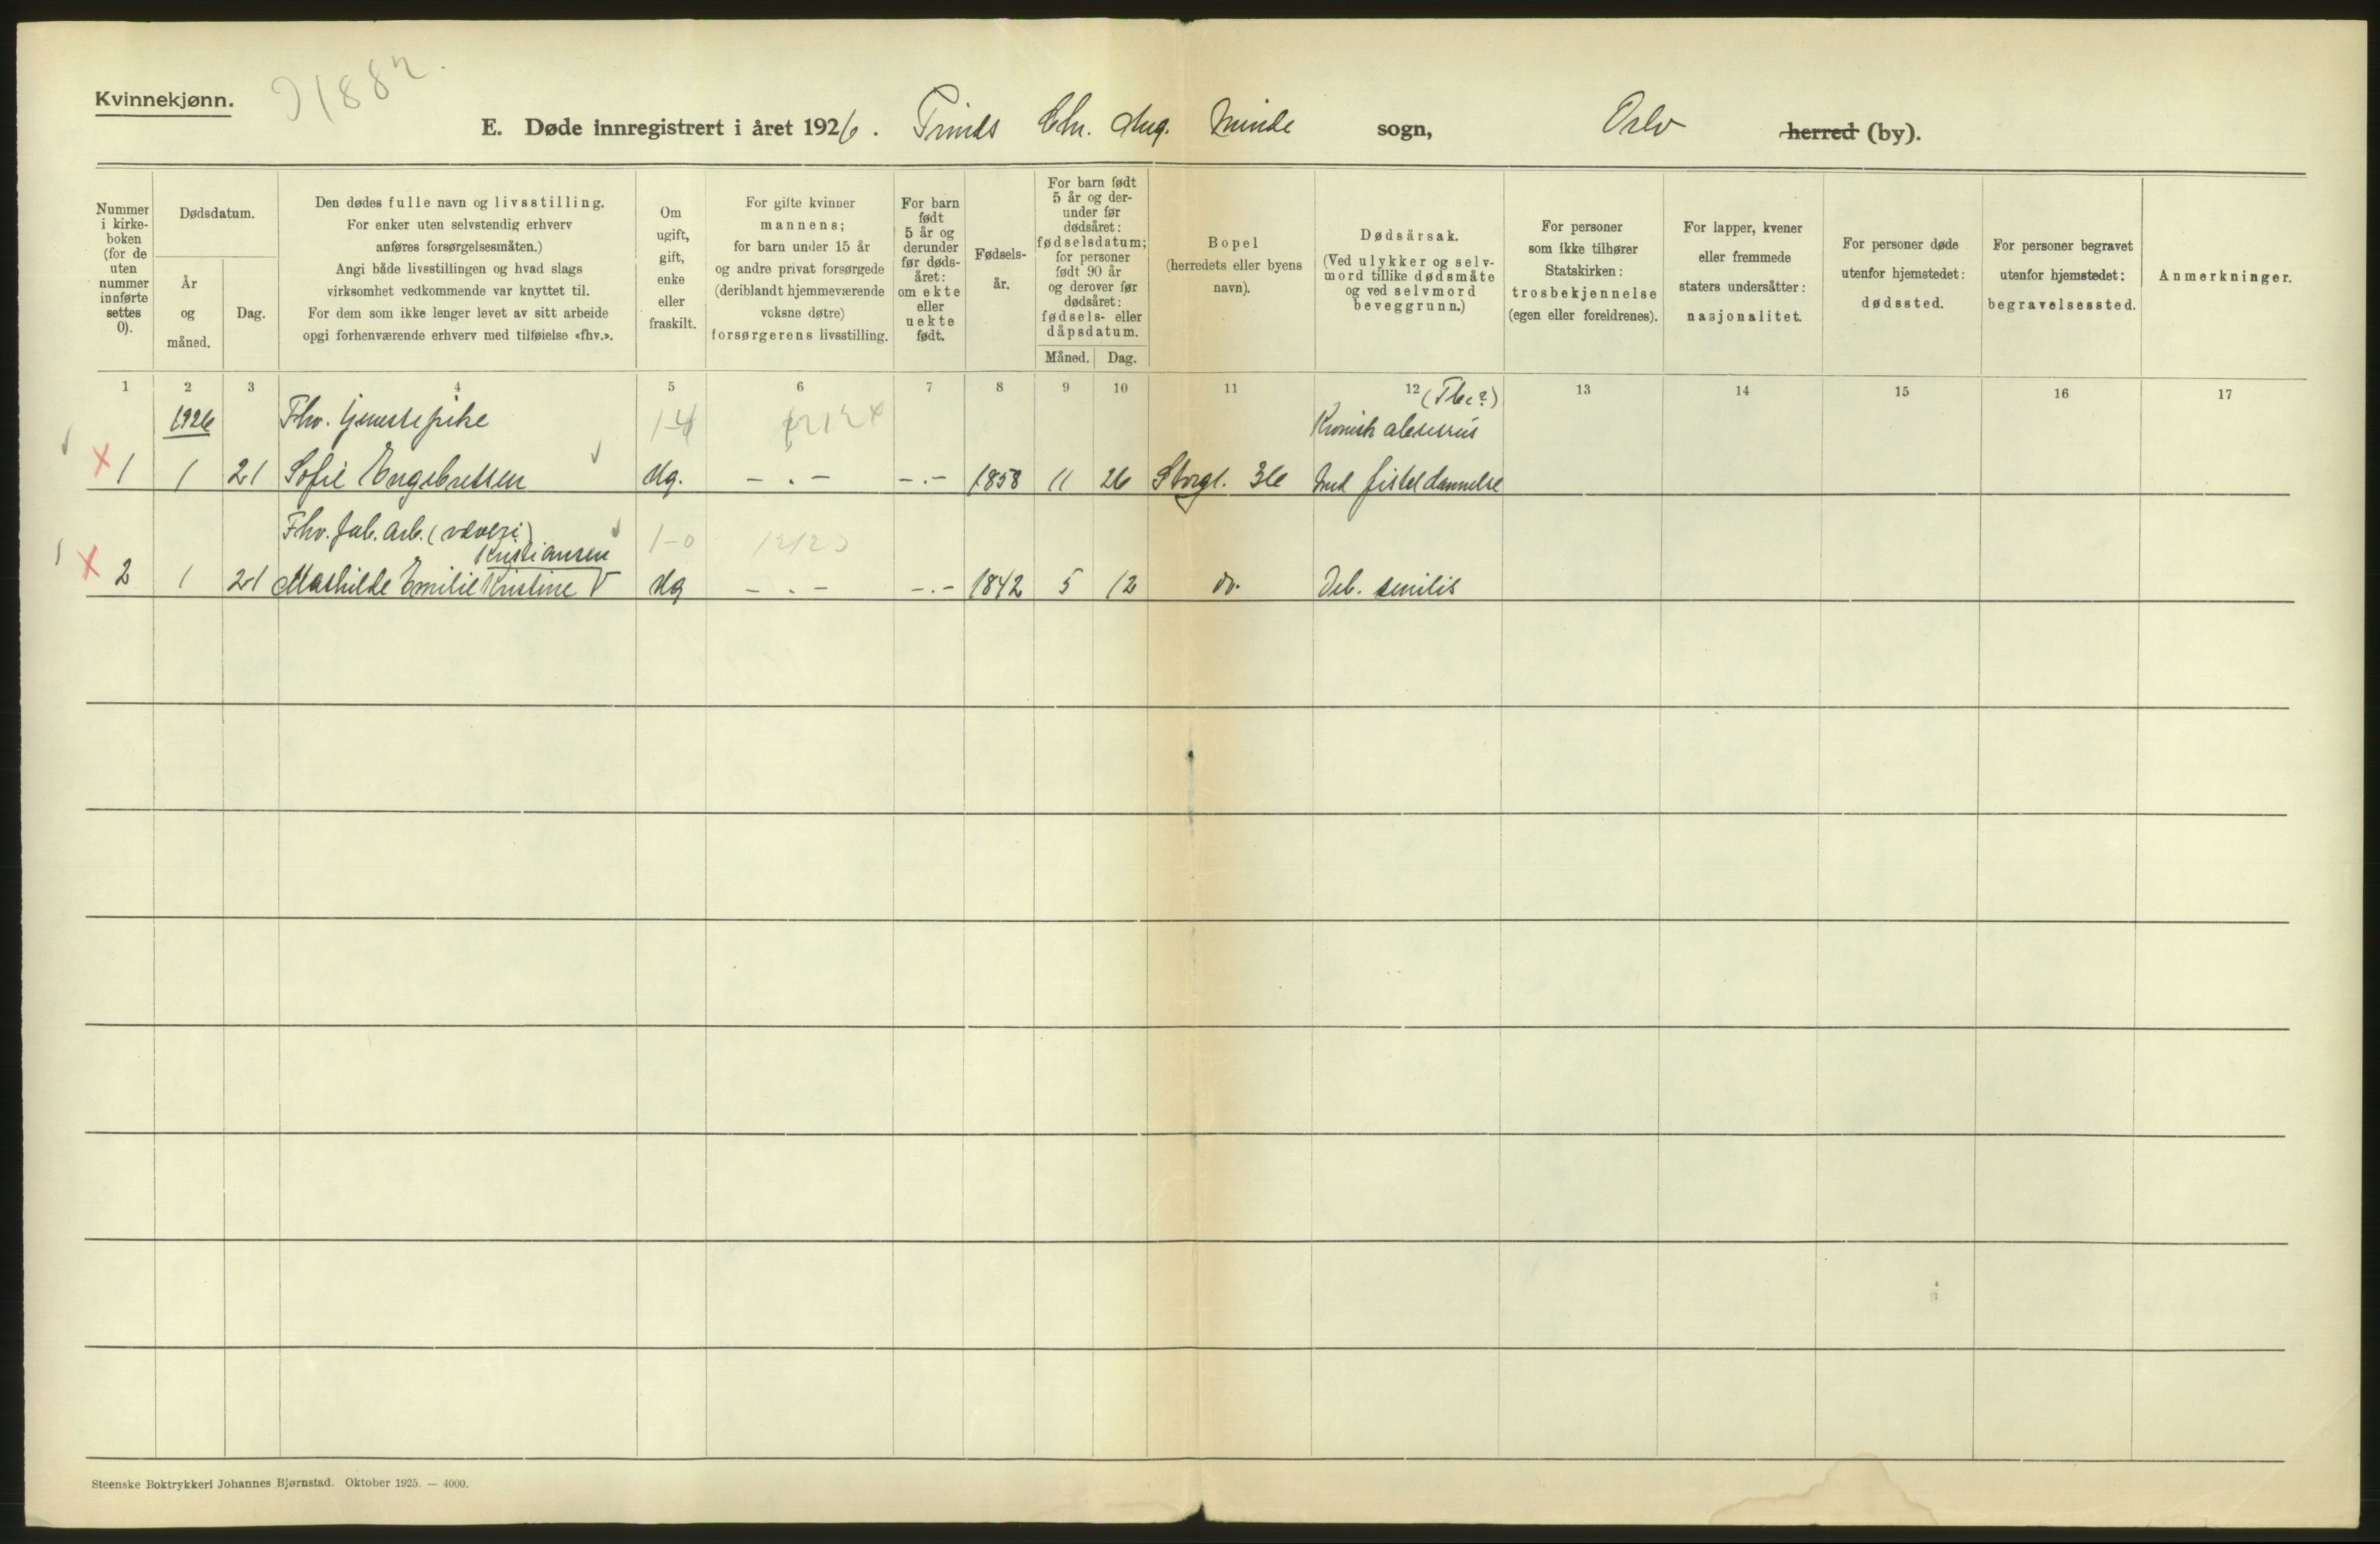 Kvinnekjønn.
E. Døde innregistrert i året 1926. Prinds Chr. Aug. Minde sogn, Oslo herred (by).
Nummer i kirke- boken (for de uten nummer innførte settes 0).
Dødsdatum.
År og måned.
Dag.
Den dødes fulle navn og livsstilling.
For enker uten selvstendig erhverv
anføres forsørgelsesmåten.)
Angi både livsstillingen og hvad slags
virksomhet vedkommende var knyttet til.
For dem som ikke lenger levet av sitt arbeide
opgi forhenværende erhverv med tilføielse «fhv.».
Om
ugift,
gift,
enke
eller
fraskilt.
For gifte kvinner
mannens;
for barn under 15 år
og andre privat forsørgede
(deriblandt hjemmeværende
voksne døtre)
forsørgerens livsstilling.
For barn
født
5 år og
derunder
før døds-
året:
om ekte
eller
uekte
født.
Fødsels-
år.
For barn født
5 år og der-
under før
dødsåret:
fødselsdatum;
for personer
født 90 år
og derover før
dødsåret:
fødsels- eller
dåpsdatum.
Måned. Dag.
Bopel
(herredets eller byens
navn).
Dødsårsak.
(Ved ulykker og selv-
mord tillike dødsmåte
og ved selvmord
beveggrunn.)
For personer
som ikke tilhører
Statskirken:
trosbekjennelse
(egen eller foreldrenes).
For lapper, kvener
eller fremmede
staters undersåtter:
nasjonalitet.
For personer døde
utenfor hjemstedet:
dødssted.
For personer begravet
utenfor hjemstedet:
begravelsessted.
Anmerkninger.
1 2 3 4 5 6 7 8 9 10 11 12 13 14 15 16 17
(Tbc?)
1926 Fhv. tjenestepike 1-4 Kronisk abscess
1 1 21 Sofie Engebretsen Ug. - . - - . - 1858 11 26 Storgt. 36 med fisteldannelse
Fhv. fab. arb. (veveri) 1-0
Kristiansen
2 1 21 Mathilde Emilie Kristine Ug - . - - . - 1842 5 12 do. Deb. senilis
Steenske Boktrykkeri Johannes Bjørnstad. Oktober 1925. — 4000.